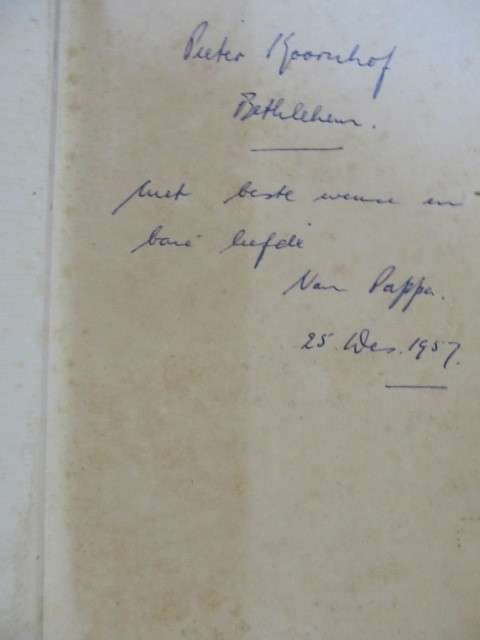 Pieter Koornhof
Bethlehem.
Met beste wense en
baie liefde
Van Pappa.
25. Des. 1957.